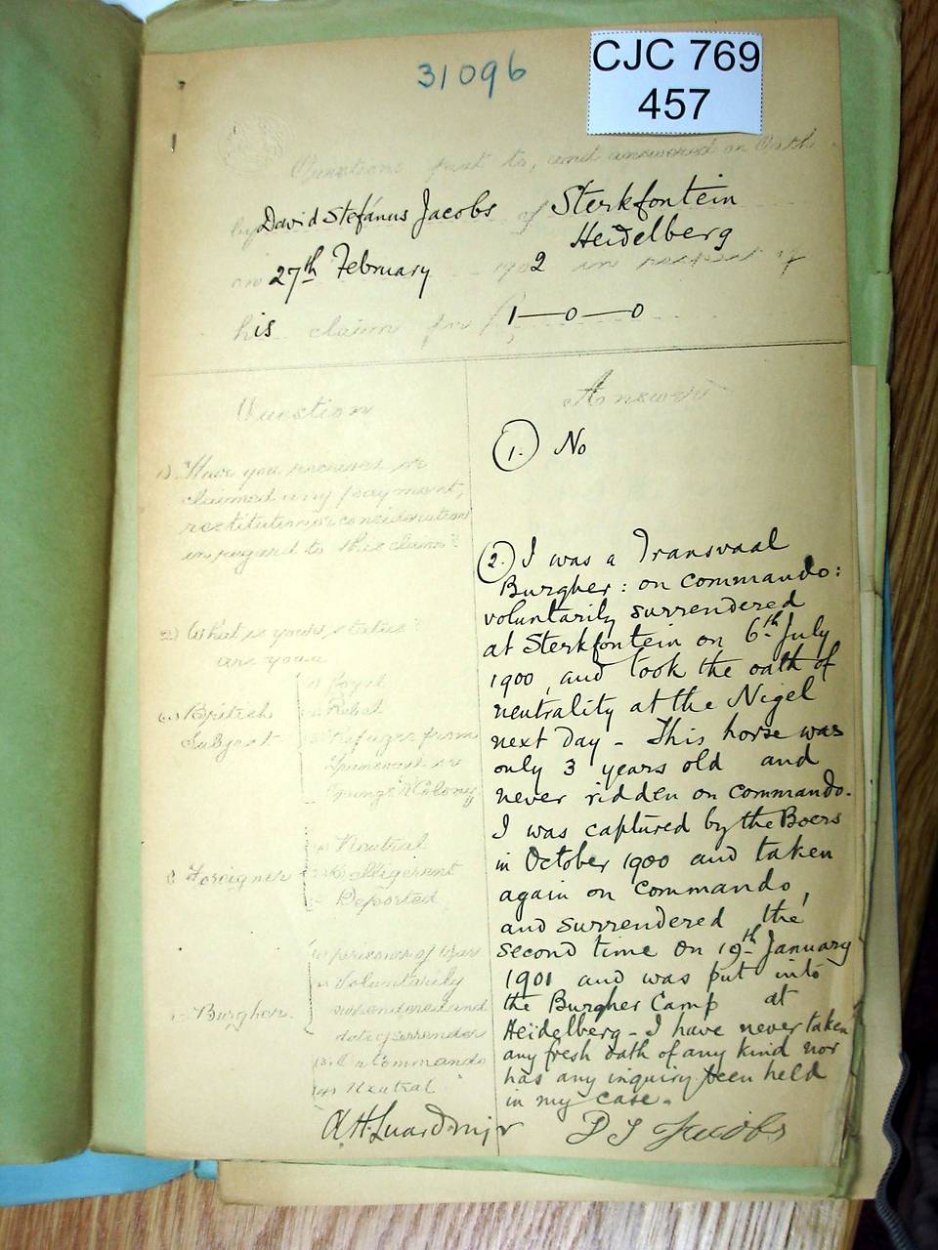 31096
CJC 769
457
Questions put to, and answered on Oath
by David Stefánus Jacobs of Sterkfontein
Heidelberg
on 27th February 1902 in respect of
his claim for £ 1—0—0
Question
Answer
1. No
1) Have you received or
claimed any payment,
restitution or consideration
in regard to this claim?
2. I was a Transvaal
Burgher: on commando:
voluntarily surrendered
at Sterkfontein on 6th July
1900, and took the oath of
neutrality at the Nigel
next day - This horse was
only 3 years old and
never ridden on commando.
I was captured by the Boers
in October 1900 and taken
again on commando,
and surrendered the
second time on 19th January
1901 and was put into
the Burgher Camp at
Heidelberg - I have never taken
any fresh oath of any kind nor
has any inquiry been held
in my case.
2) What is your status?
are you a
British
Subject
Loyal
Rebel
Refugee from
Transvaal or
Orange R Colony
Foreigner
Neutral
Belligerent
Deported
Burgher
prisoner of War
Voluntarily
surrendered and
date of surrender
On Commando
Neutral
A.H. Luard Major
D S Jacobs